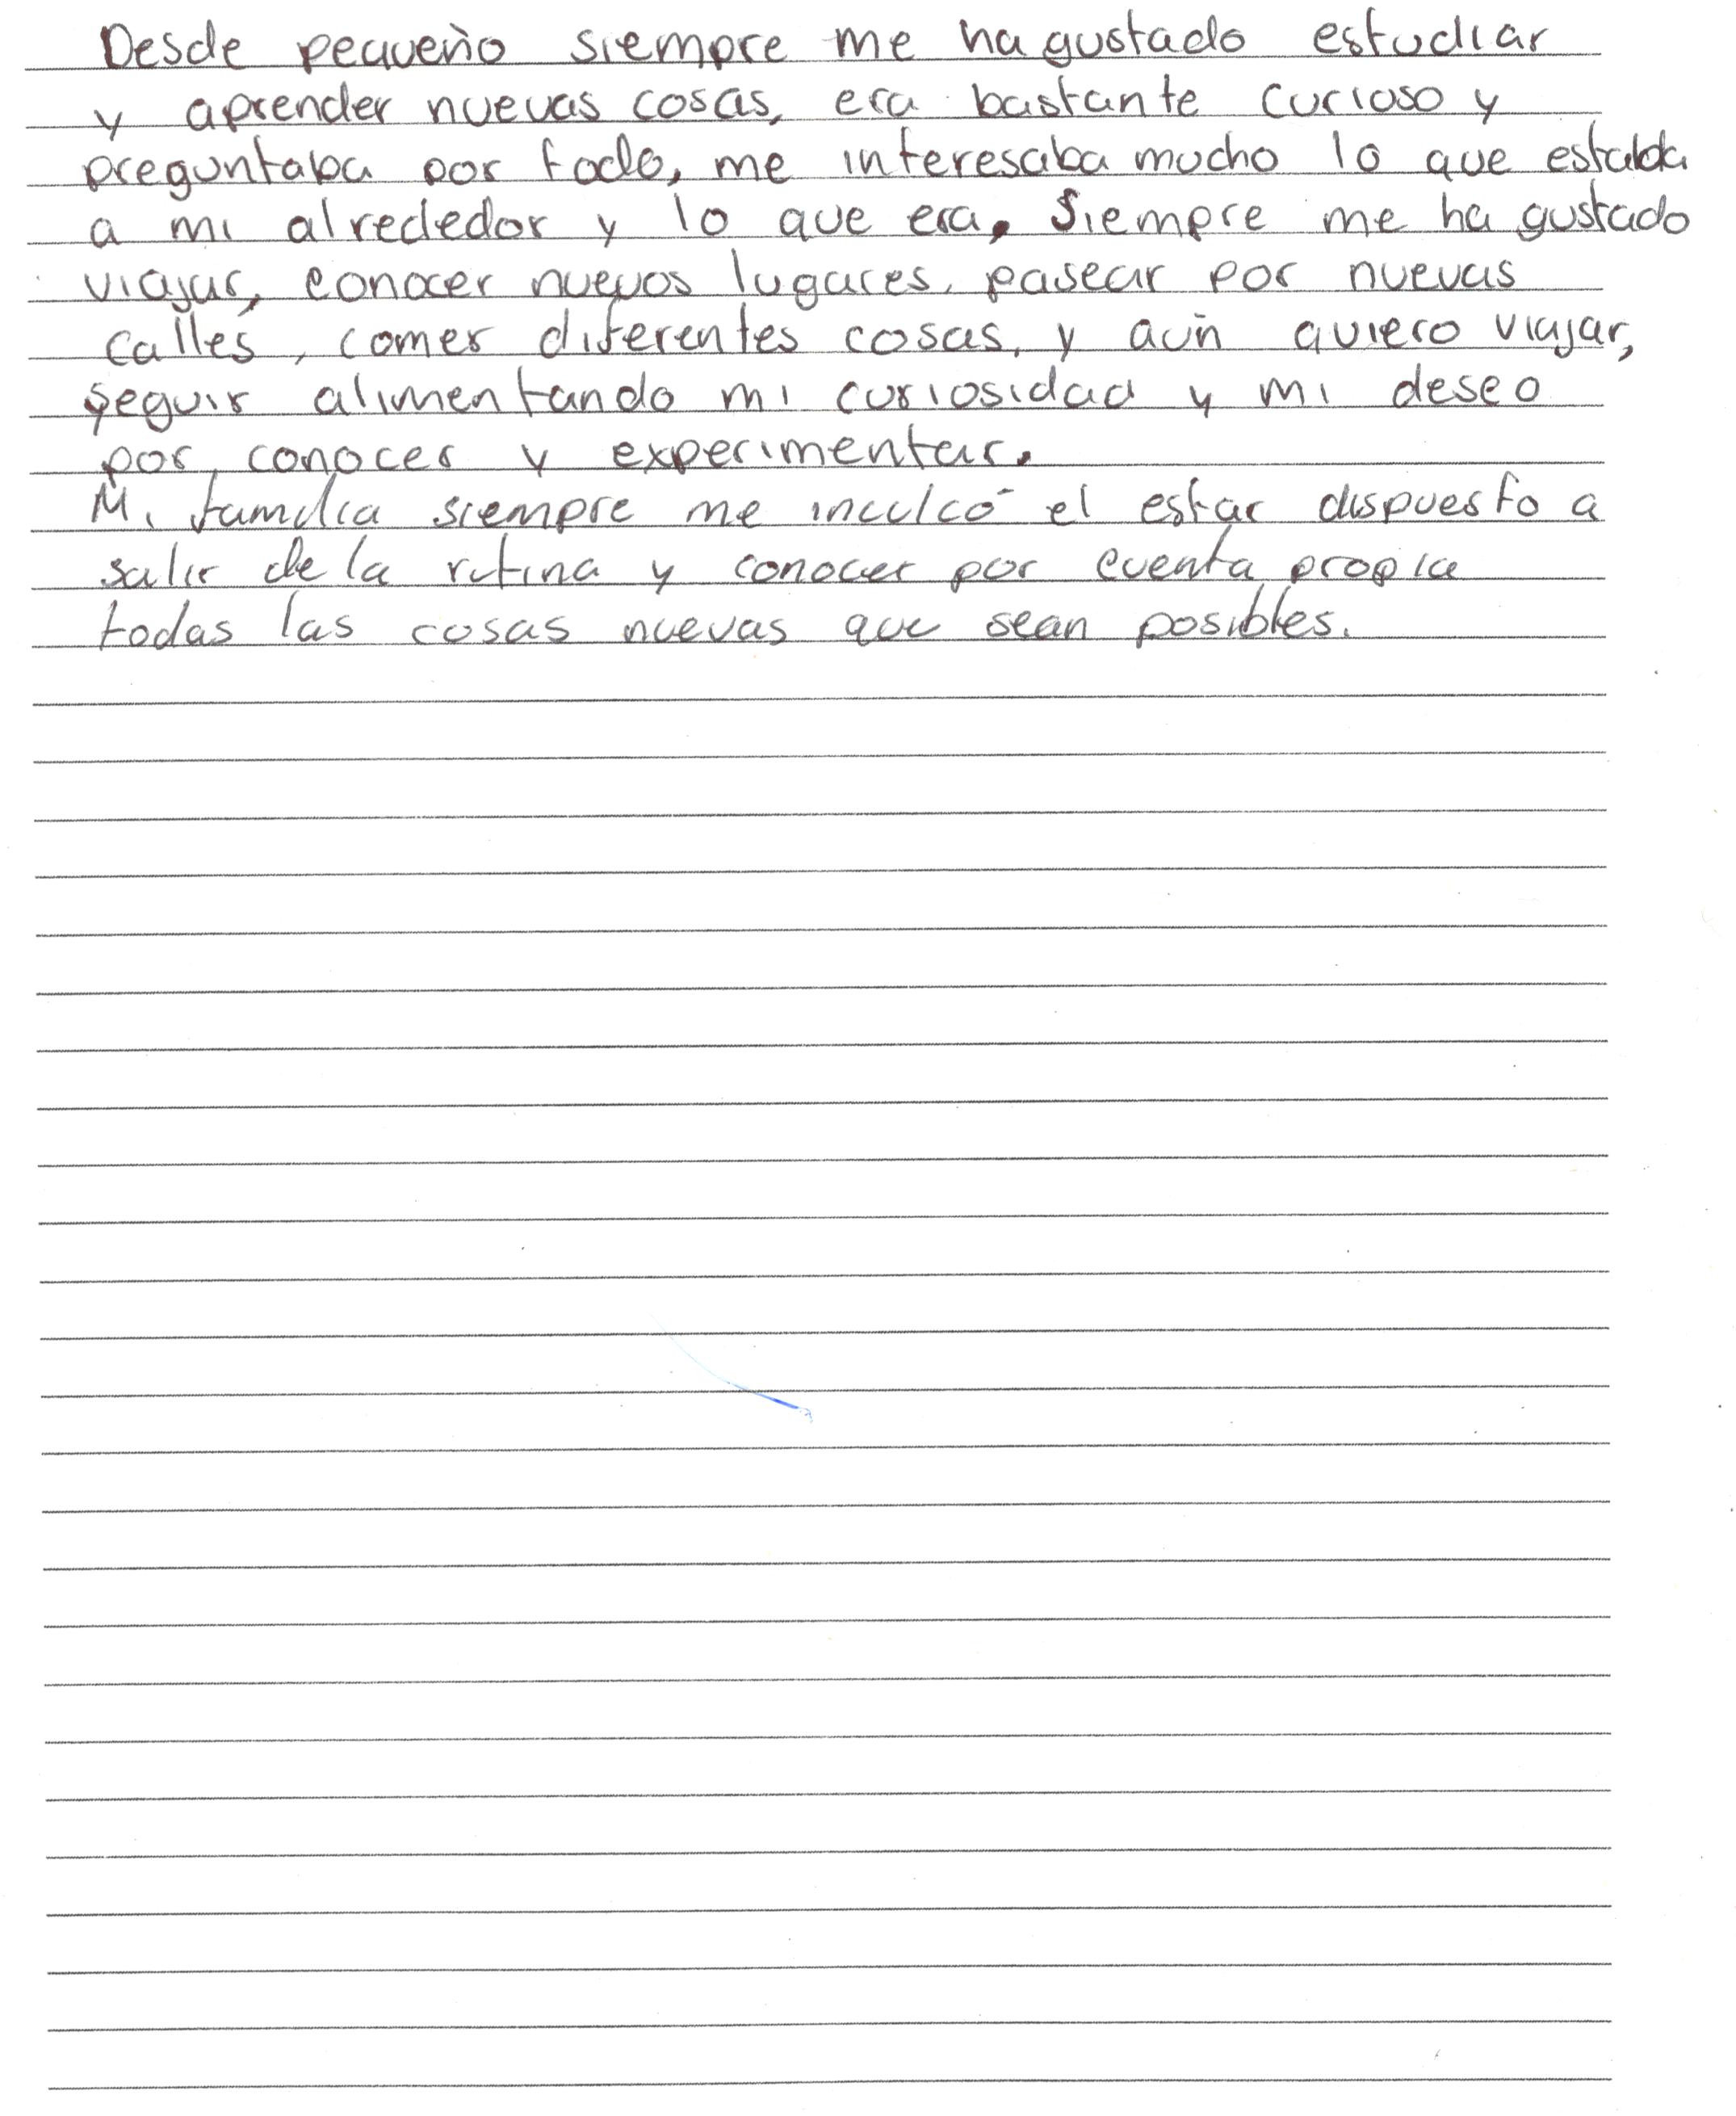 Desde pequeño siempre me ha gustado estudiar
y aprender nuevas cosas, era bastante curioso y
preguntaba por todo, me interesaba mucho lo que estaba
a mi alrededor y lo que era. Siempre me ha gustado
viajar, conocer nuevos lugares, pasear por nuevas
calles, comer diferentes cosas, y aún quiero viajar,
seguir alimentando mi curiosidad y mi deseo
por conocer y experimentar.
Mi familia siempre me inculcó el estar dispuesto a
salir de la rutina y conocer por cuenta propia
todas las cosas nuevas que sean posibles.